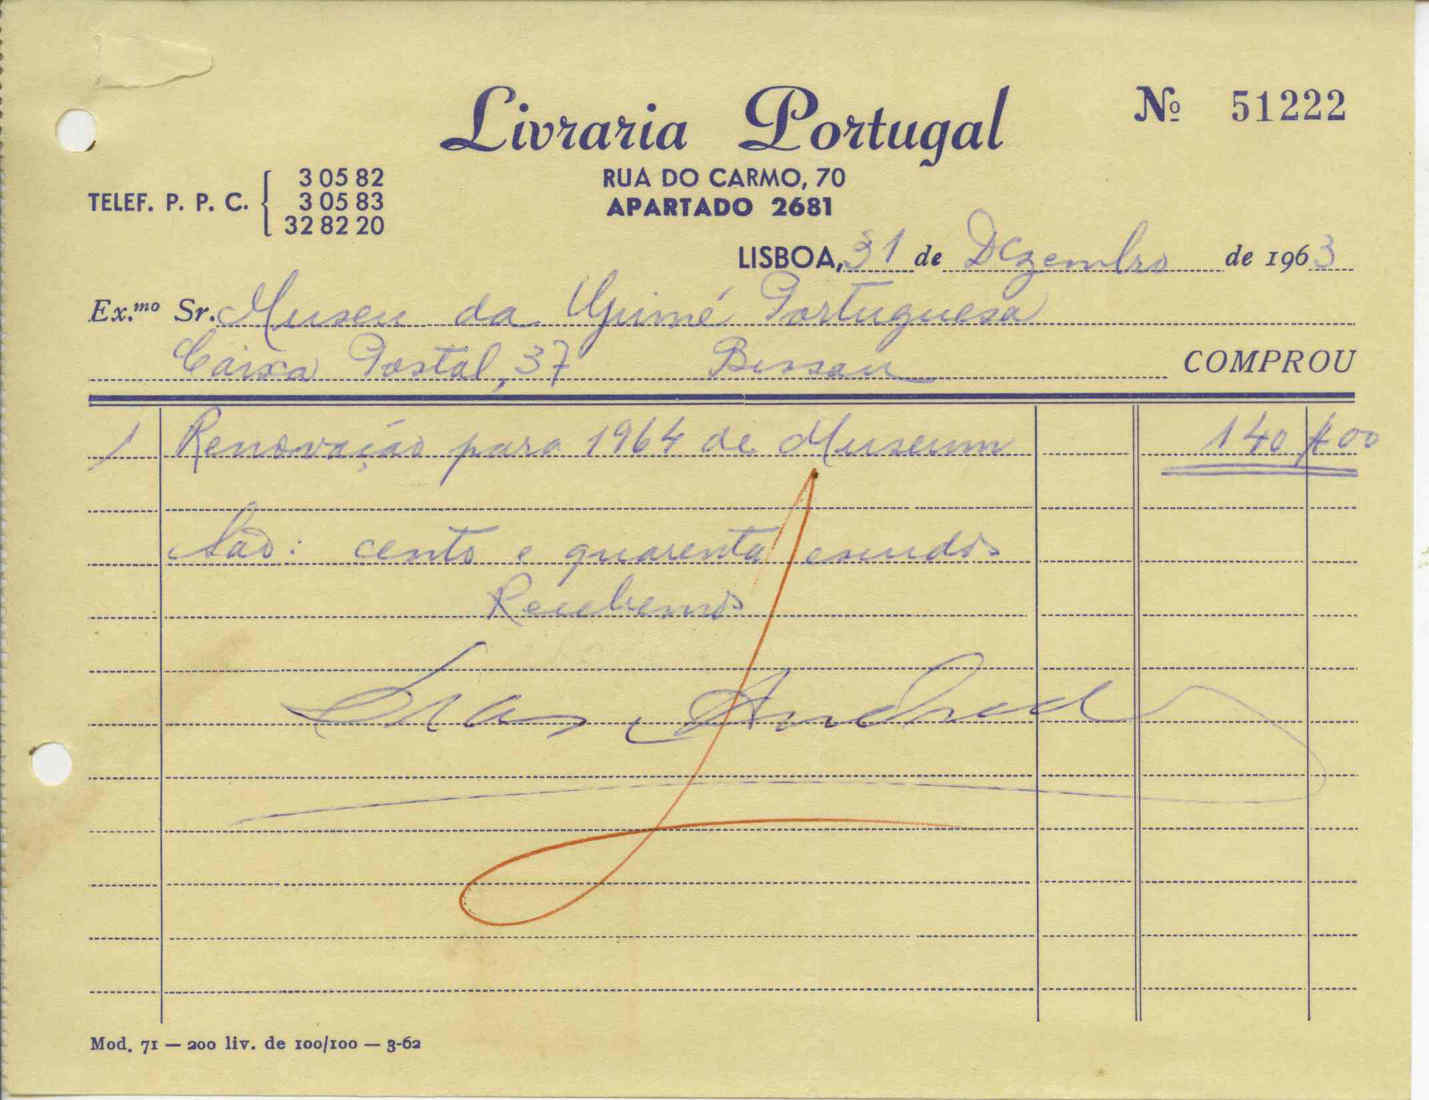 Livraria Portugal
Nº 51222
RUA DO CARMO, 70
APARTADO 2681
TELEF. P. P. C. { 3 05 82
3 05 83
32 82 20
LISBOA, 31 de Dezembro de 1963
Ex.mo Sr. Museu da Guiné Portuguesa
Caixa Postal, 37 Bissau COMPROU
1 Renovação para 1964 de Museum 140$00
São: cento e quarenta escudos
Recebemos
Andrade
Mod. 71 — 200 liv. de 100/100 — 3-62